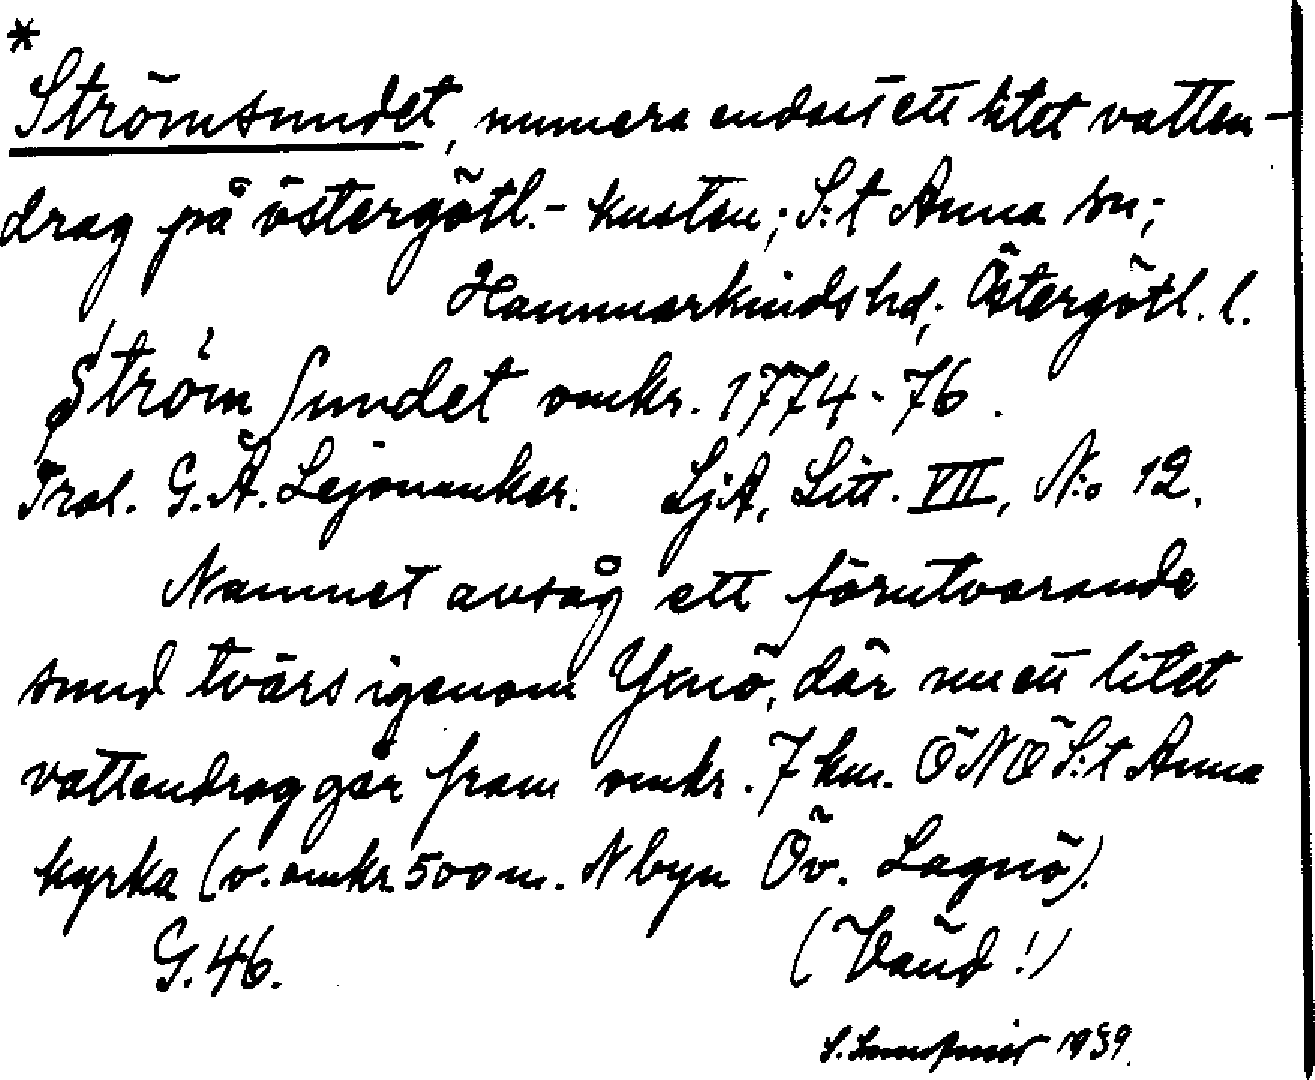 *
Strömsundet, numera endast ett litet vatten-
drag på östergötl.- kusten; S:t Anna sn;
Hammarkinds hd; Östergötl. l.
Ström sundet omkr. 1774-76.
G. Ä. Lejonanker. LjA, Litt. VII, N:o 12.
Namnet avsåg ett förutvarande
sund tvärs igenom Yxnö, där nu ett litet
vattendrag går fram omkr. 7 km. ÖNÖ S:t Anna
kyrka (o. omkr. 500 m. N byn Öv. Lagnö).
G. 46. (Vänd!)
1939.